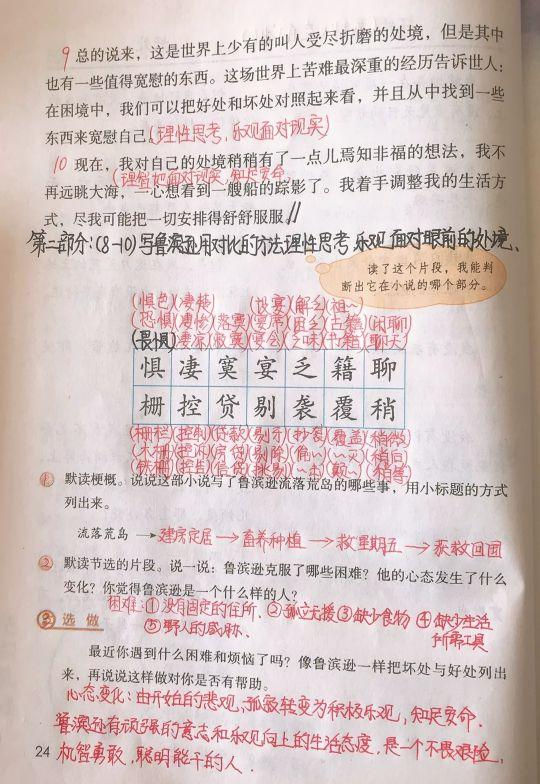 9 总的说来，这是世界上少有的叫人受尽折磨的处境，但是其中
也有一些值得宽慰的东西。这场世界上苦难最深重的经历告诉世人：
在困境中，我们可以把好处和坏处对照起来看，并且从中找到一些
东西来宽慰自己。(理性思考，乐观面对现实)
10 现在，我对自己的处境稍稍有了一点儿焉知非福的想法，我不
(理智地面对现实，知足安命)
再远眺大海，一心想看到一艘船的踪影了。我着手调整我的生活方
式，尽我可能把一切安排得舒舒服服。//
第二部分：(8-10)写鲁滨逊用对比的方法理性思考，乐观面对眼前的处境、
读了这个片段，我能判
断出它在小说的哪个部分。
(惧色)(凄楚) (设宴)(解乏)(祖~)
(恐惧)(凄惨)(落寞)(宴席)(困乏)(古籍)(闲聊)
(畏惧)(凄凉)(寂寞)(宴会)(乏味)(书籍)(聊天)
惧 凄 寞 宴 乏 籍 聊
栅 控 贷 剔 袭 覆 稍
(栅栏)(控制)(贷款)(剔牙)(抄袭)(覆盖)(稍微)
(木栅)(把控)(房贷)(剔除)(偷~)(~灭)(稍后)
(铁栅)(控告)(信贷)(挑剔)(~击)(颠~)(稍等)
1 默读梗概。说说这部小说写了鲁滨逊流落荒岛的哪些事，用小标题的方式
列出来。
流落荒岛 →建房定居→畜养种植→救"星期五"→获救回国
2 默读节选的片段。说一说：鲁滨逊克服了哪些困难？他的心态发生了什么
变化？你觉得鲁滨逊是一个什么样的人？
困难：①没有固定的住所、②孤立无援③缺少食物 ④缺少生活
所需工具
⑤野人的威胁、
3 选做
最近你遇到什么困难和烦恼了吗？像鲁滨逊一样把坏处与好处列出
来，再说说这样做对你是否有帮助。
心态变化：由开始的悲观、孤寂转变为积极乐观，知足安命．
鲁滨逊有顽强的意志和乐观向上的生活态度，是一个不畏艰险，
24 机智勇敢，聪明能干的人．